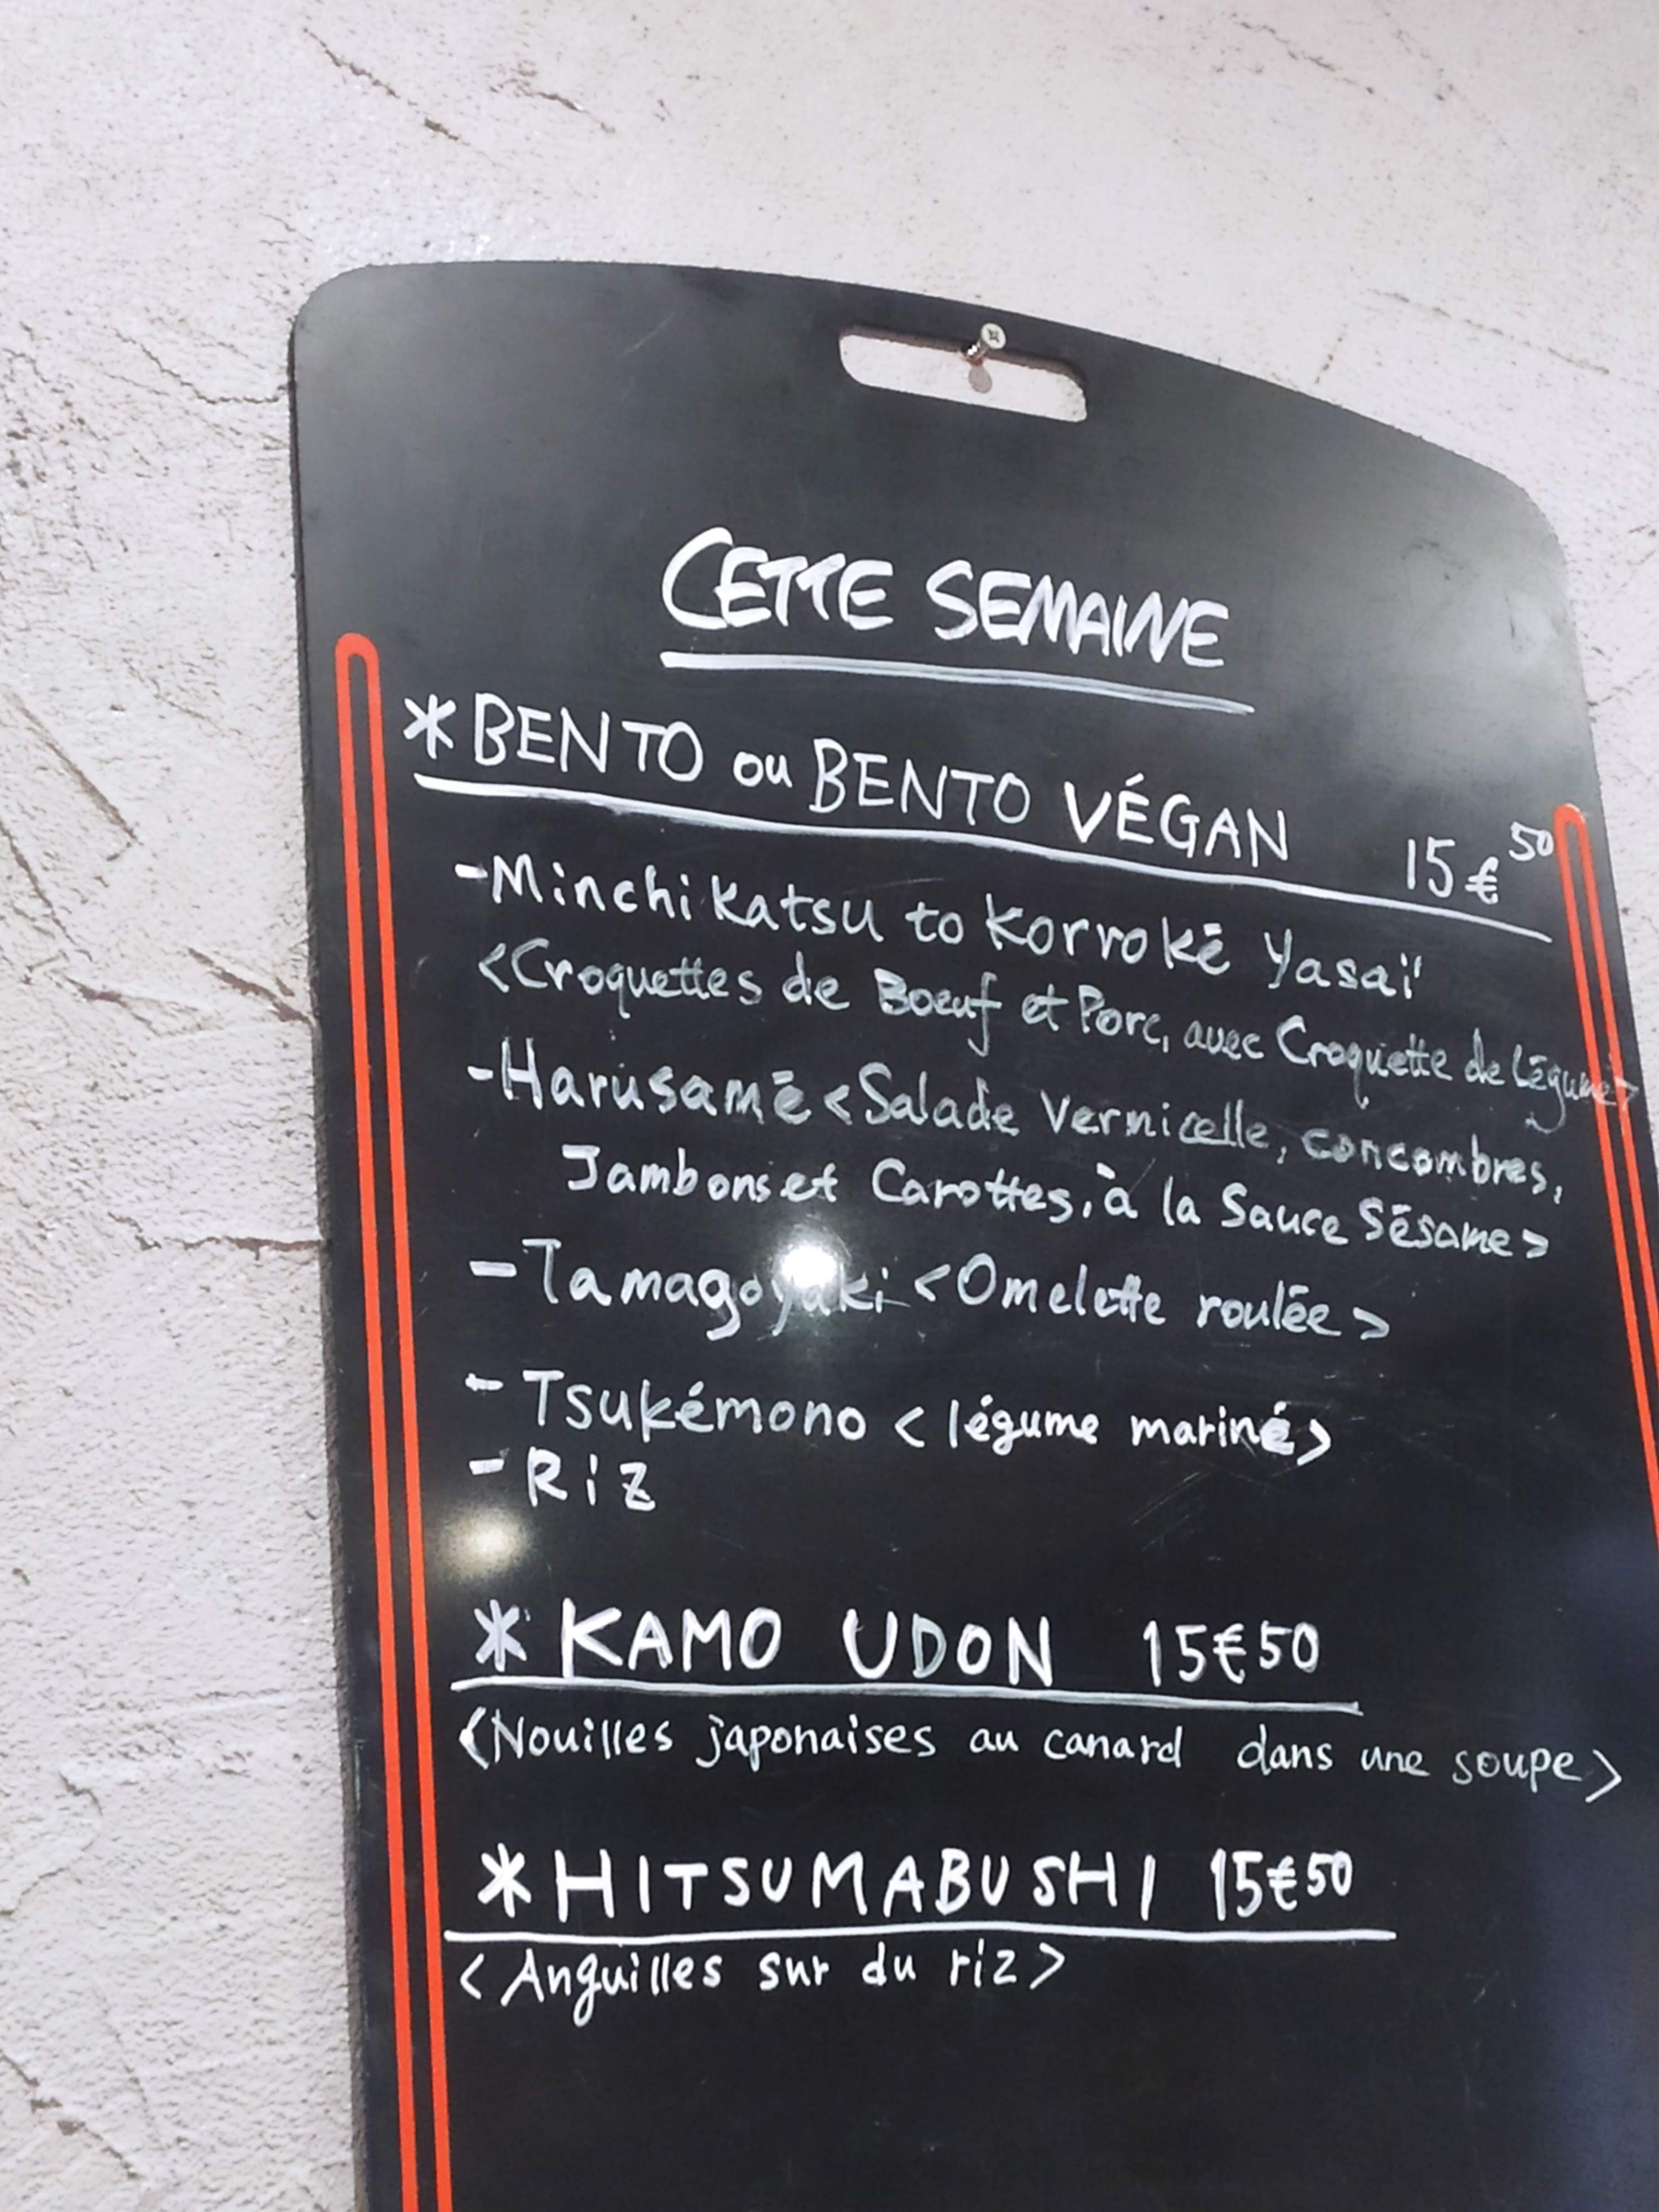 CETTE SEMAINE
*BENTO ou BENTO VÉGAN 15€50
-Minchi Katsu to Korroké Yasaï
<Croquettes de Boeuf et Porc, avec Croquette de Légume>
-Harusamé <Salade Vermicelle, concombres,
Jambons et Carottes, à la Sauce Sésame>
-Tamagoyaki <Omelette roulée>
-Tsukémono <légume mariné>
-Riz
*KAMO UDON 15€50
<Nouilles japonaises au canard dans une soupe>
*HITSUMABUSHI 15€50
<Anguilles sur du riz>